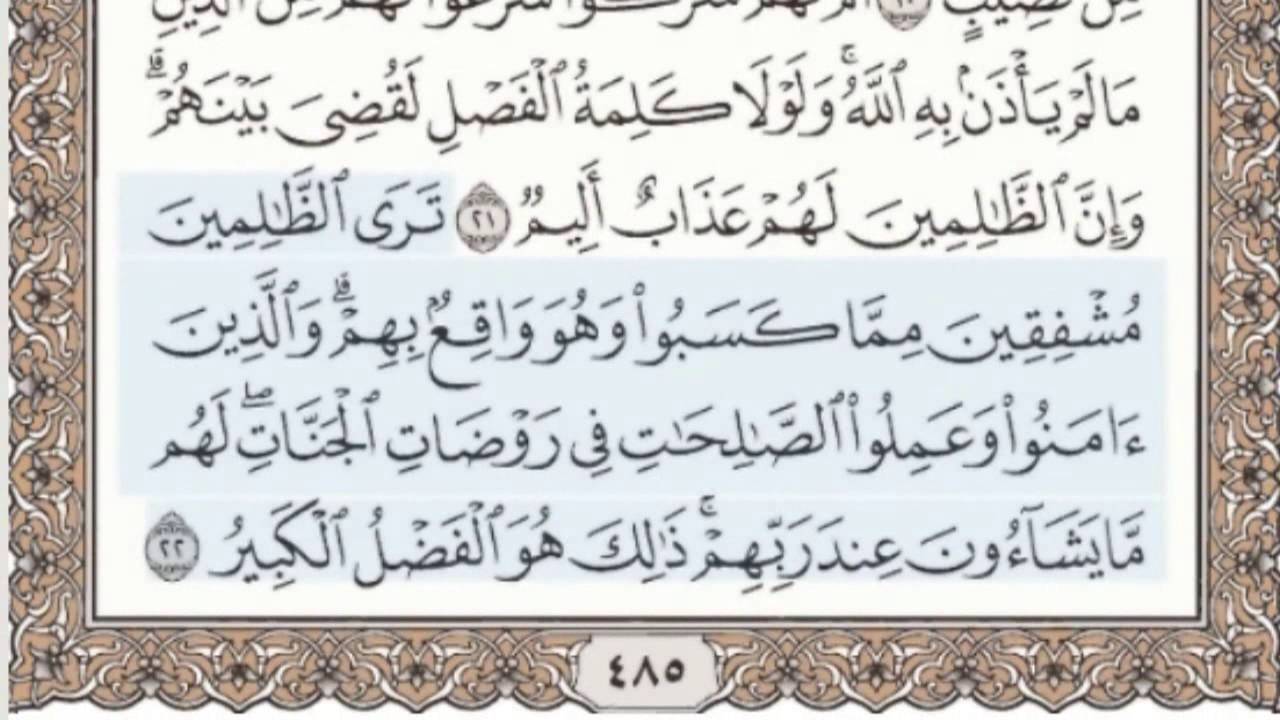 مِّن نَّصِيبٍ ٢٠ أَمْ لَهُمْ شُرَكَٰٓؤُا۟ شَرَعُوا۟ لَهُم مِّنَ ٱلدِّينِ
مَا لَمْ يَأْذَنۢ بِهِ ٱللَّهُ ۚ وَلَوْلَا كَلِمَةُ ٱلْفَصْلِ لَقُضِىَ بَيْنَهُمْ ۗ
وَإِنَّ ٱلظَّٰلِمِينَ لَهُمْ عَذَابٌ أَلِيمٌ ٢١ تَرَى ٱلظَّٰلِمِينَ
مُشْفِقِينَ مِمَّا كَسَبُوا۟ وَهُوَ وَاقِعٌۢ بِهِمْ ۗ وَٱلَّذِينَ
ءَامَنُوا۟ وَعَمِلُوا۟ ٱلصَّٰلِحَٰتِ فِى رَوْضَاتِ ٱلْجَنَّاتِ ۖ لَهُم
مَّا يَشَآءُونَ عِندَ رَبِّهِمْ ۚ ذَٰلِكَ هُوَ ٱلْفَضْلُ ٱلْكَبِيرُ ٢٢
٤٨٥